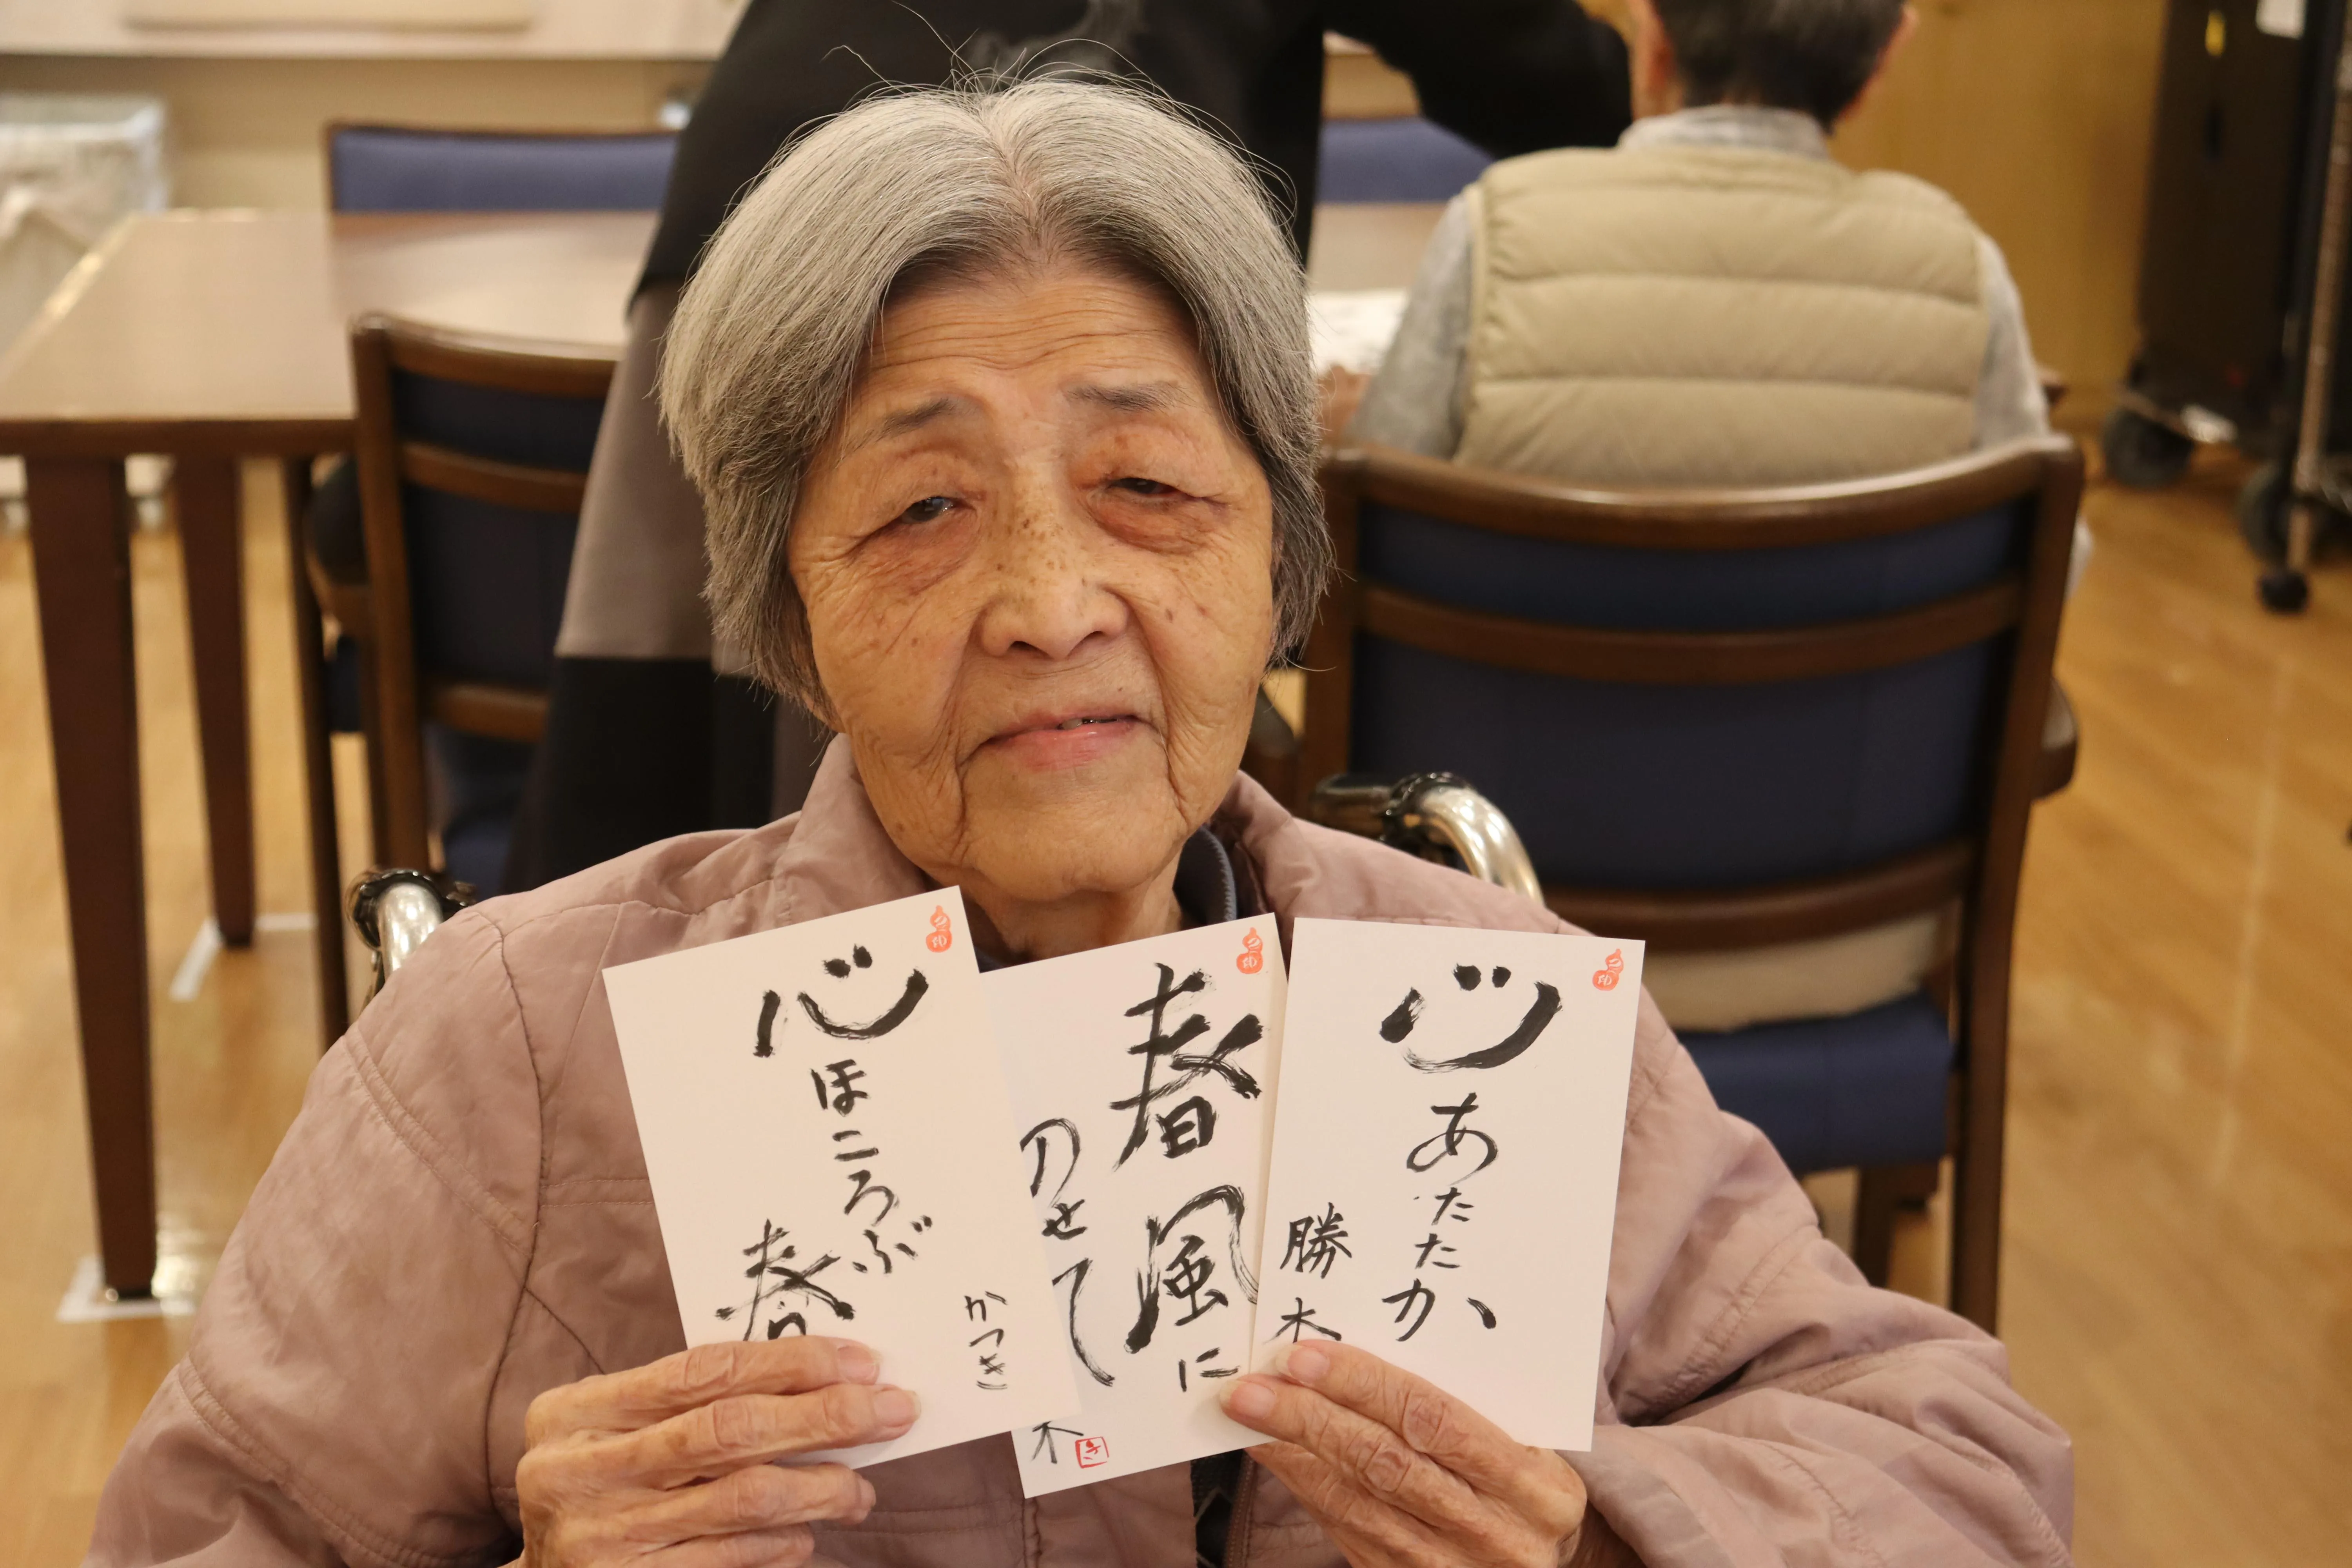 心
ほころぶ
春
かつき
春風に
のせて
木
心
あたたか
勝木